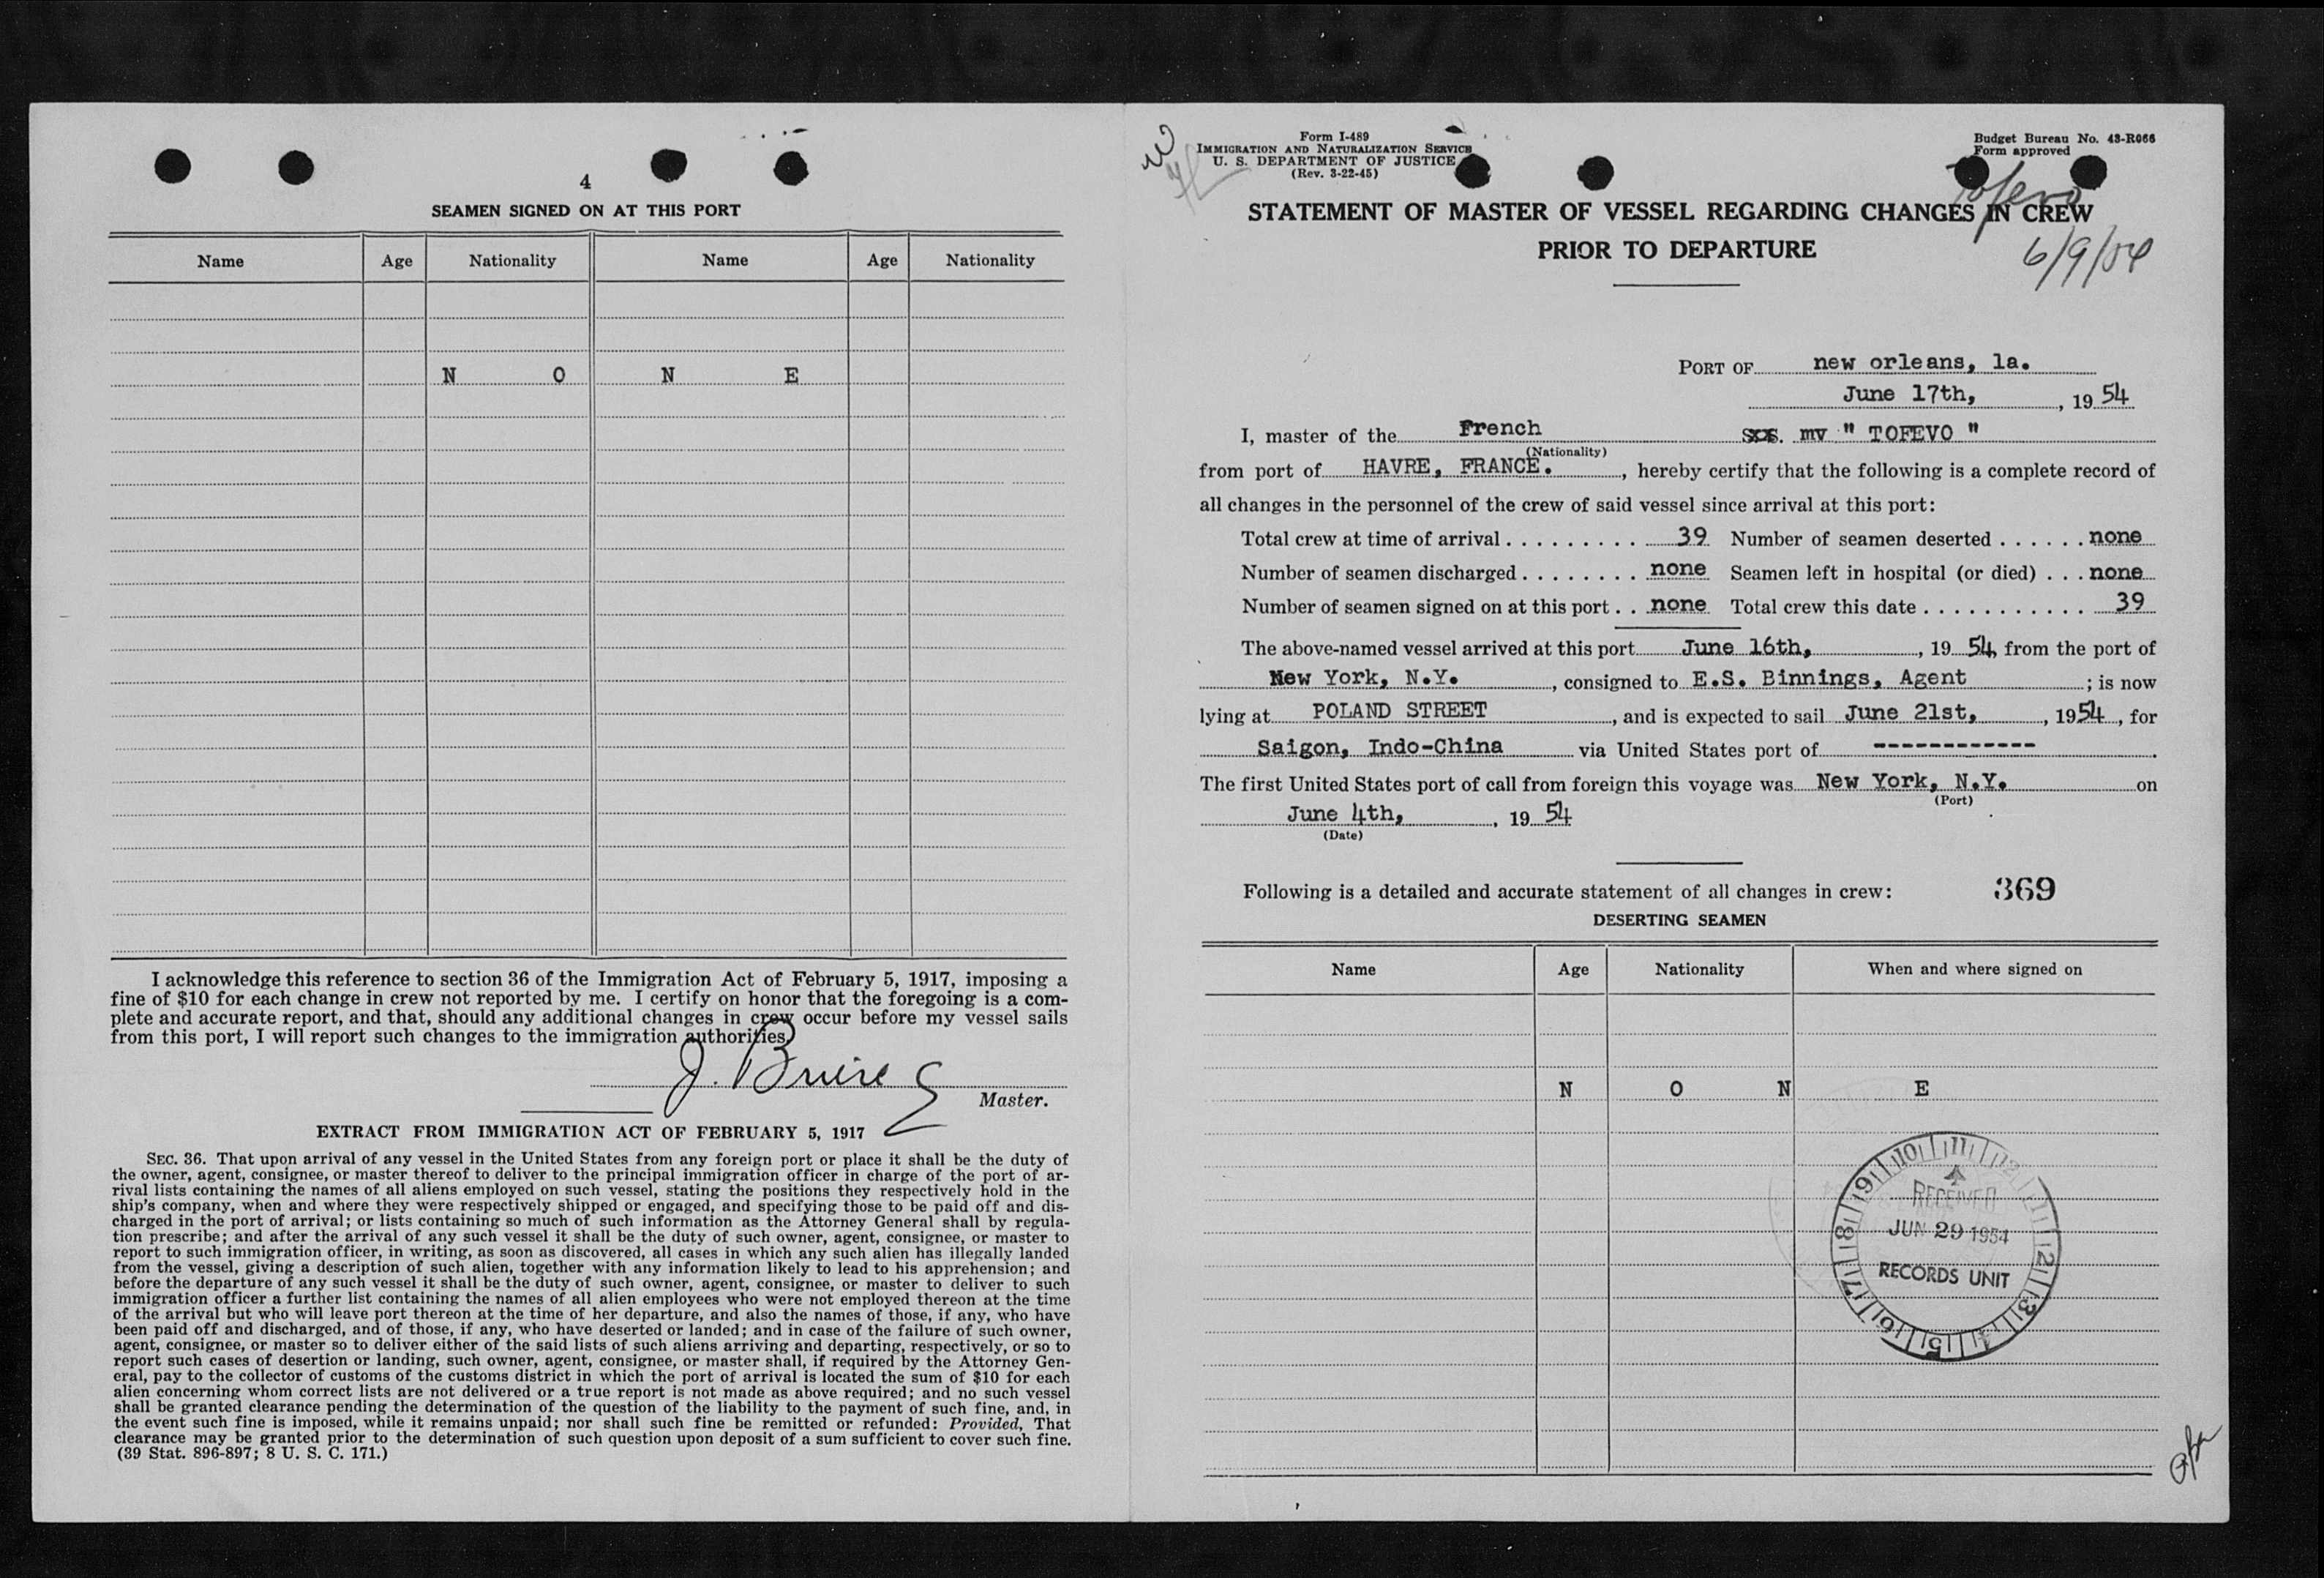 4
SEAMEN SIGNED ON AT THIS PORT
Name Age Nationality Name Age Nationality
N O N E
I acknowledge this reference to section 36 of the Immigration Act of February 5, 1917, imposing a
fine of $10 for each change in crew not reported by me. I certify on honor that the foregoing is a com-
plete and accurate report, and that, should any additional changes in crew occur before my vessel sails
from this port, I will report such changes to the immigration authorities.
Master.
EXTRACT FROM IMMIGRATION ACT OF FEBRUARY 5, 1917
SEC. 36. That upon arrival of any vessel in the United States from any foreign port or place it shall be the duty of
the owner, agent, consignee, or master thereof to deliver to the principal immigration officer in charge of the port of ar-
rival lists containing the names of all aliens employed on such vessel, stating the positions they respectively hold in the
ship's company, when and where they were respectively shipped or engaged, and specifying those to be paid off and dis-
charged in the port of arrival; or lists containing so much of such information as the Attorney General shall by regula-
tion prescribe; and after the arrival of any such vessel it shall be the duty of such owner, agent, consignee, or master to
report to such immigration officer, in writing, as soon as discovered, all cases in which any such alien has illegally landed
from the vessel, giving a description of such alien, together with any information likely to lead to his apprehension; and
before the departure of any such vessel it shall be the duty of such owner, agent, consignee, or master to deliver to such
immigration officer a further list containing the names of all alien employees who were not employed thereon at the time
of the arrival but who will leave port thereon at the time of her departure, and also the names of those, if any, who have
been paid off and discharged, and of those, if any, who have deserted or landed; and in case of the failure of such owner,
agent, consignee, or master so to deliver either of the said lists of such aliens arriving and departing, respectively, or so to
report such cases of desertion or landing, such owner, agent, consignee, or master shall, if required by the Attorney Gen-
eral, pay to the collector of customs of the customs district in which the port of arrival is located the sum of $10 for each
alien concerning whom correct lists are not delivered or a true report is not made as above required; and no such vessel
shall be granted clearance pending the determination of the question of the liability to the payment of such fine, and, in
the event such fine is imposed, while it remains unpaid; nor shall such fine be remitted or refunded: Provided, That
clearance may be granted prior to the determination of such question upon deposit of a sum sufficient to cover such fine.
(39 Stat. 896-897; 8 U. S. C. 171.)
Form I-489
IMMIGRATION AND NATURALIZATION SERVICE
U. S. DEPARTMENT OF JUSTICE
(Rev. 3-22-45)
Budget Bureau No. 43-R066
Form approved
Tofevo
STATEMENT OF MASTER OF VESSEL REGARDING CHANGES IN CREW
PRIOR TO DEPARTURE
6/9/54
PORT OF new orleans, la.
June 17th, , 19 54
I, master of the French SS. mv " TOFEVO "
(Nationality)
from port of HAVRE, FRANCE. , hereby certify that the following is a complete record of
all changes in the personnel of the crew of said vessel since arrival at this port:
Total crew at time of arrival . . . . . . . . . 39 Number of seamen deserted . . . . . . none
Number of seamen discharged . . . . . . . . none Seamen left in hospital (or died) . . . none
Number of seamen signed on at this port . . none Total crew this date . . . . . . . . . . . 39
The above-named vessel arrived at this port June 16th, , 19 54, from the port of
New York, N.Y. , consigned to E.S. Binnings, Agent ; is now
lying at POLAND STREET , and is expected to sail June 21st, , 1954 , for
Saigon, Indo-China via United States port of ------------ .
The first United States port of call from foreign this voyage was New York, N.Y. on
(Port)
June 4th, , 19 54
(Date)
Following is a detailed and accurate statement of all changes in crew: 369
DESERTING SEAMEN
Name Age Nationality When and where signed on
N O N E
10 11 12 1 2 3 4 5 6 7 8 9
RECEIVED
JUN 29 1954
RECORDS UNIT